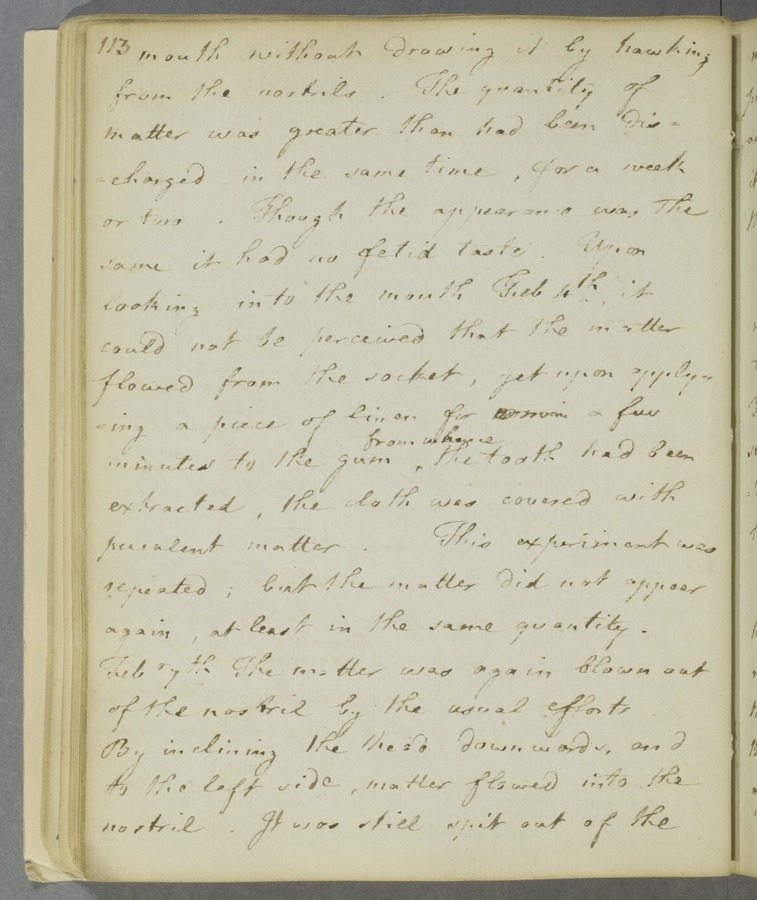 113 mouth without drawing it by hawking
from the nostrils . The quantity of
matter was greater than had been dis=
=charged in the same time , for a week
or two . Though the appearance was the
same it had no fetid taste . Upon
looking into the mouth Feb 4th , it
could not be perceived that the matter
flowed from the socket , yet upon apply=
=ing a piece of linen for a few
from whence
minutes to the gum , the tooth had been
extracted , the cloth was covered with
purulent matter . This experiment was
repeated ; but the matter did not appear
again , at least in the same quantity .
Febry 7th The matter was again blown out
of the nostril by the usual efforts
By inclining the head downwards , and
to the left side , matter flowed into the
nostril . It was still spit out of the